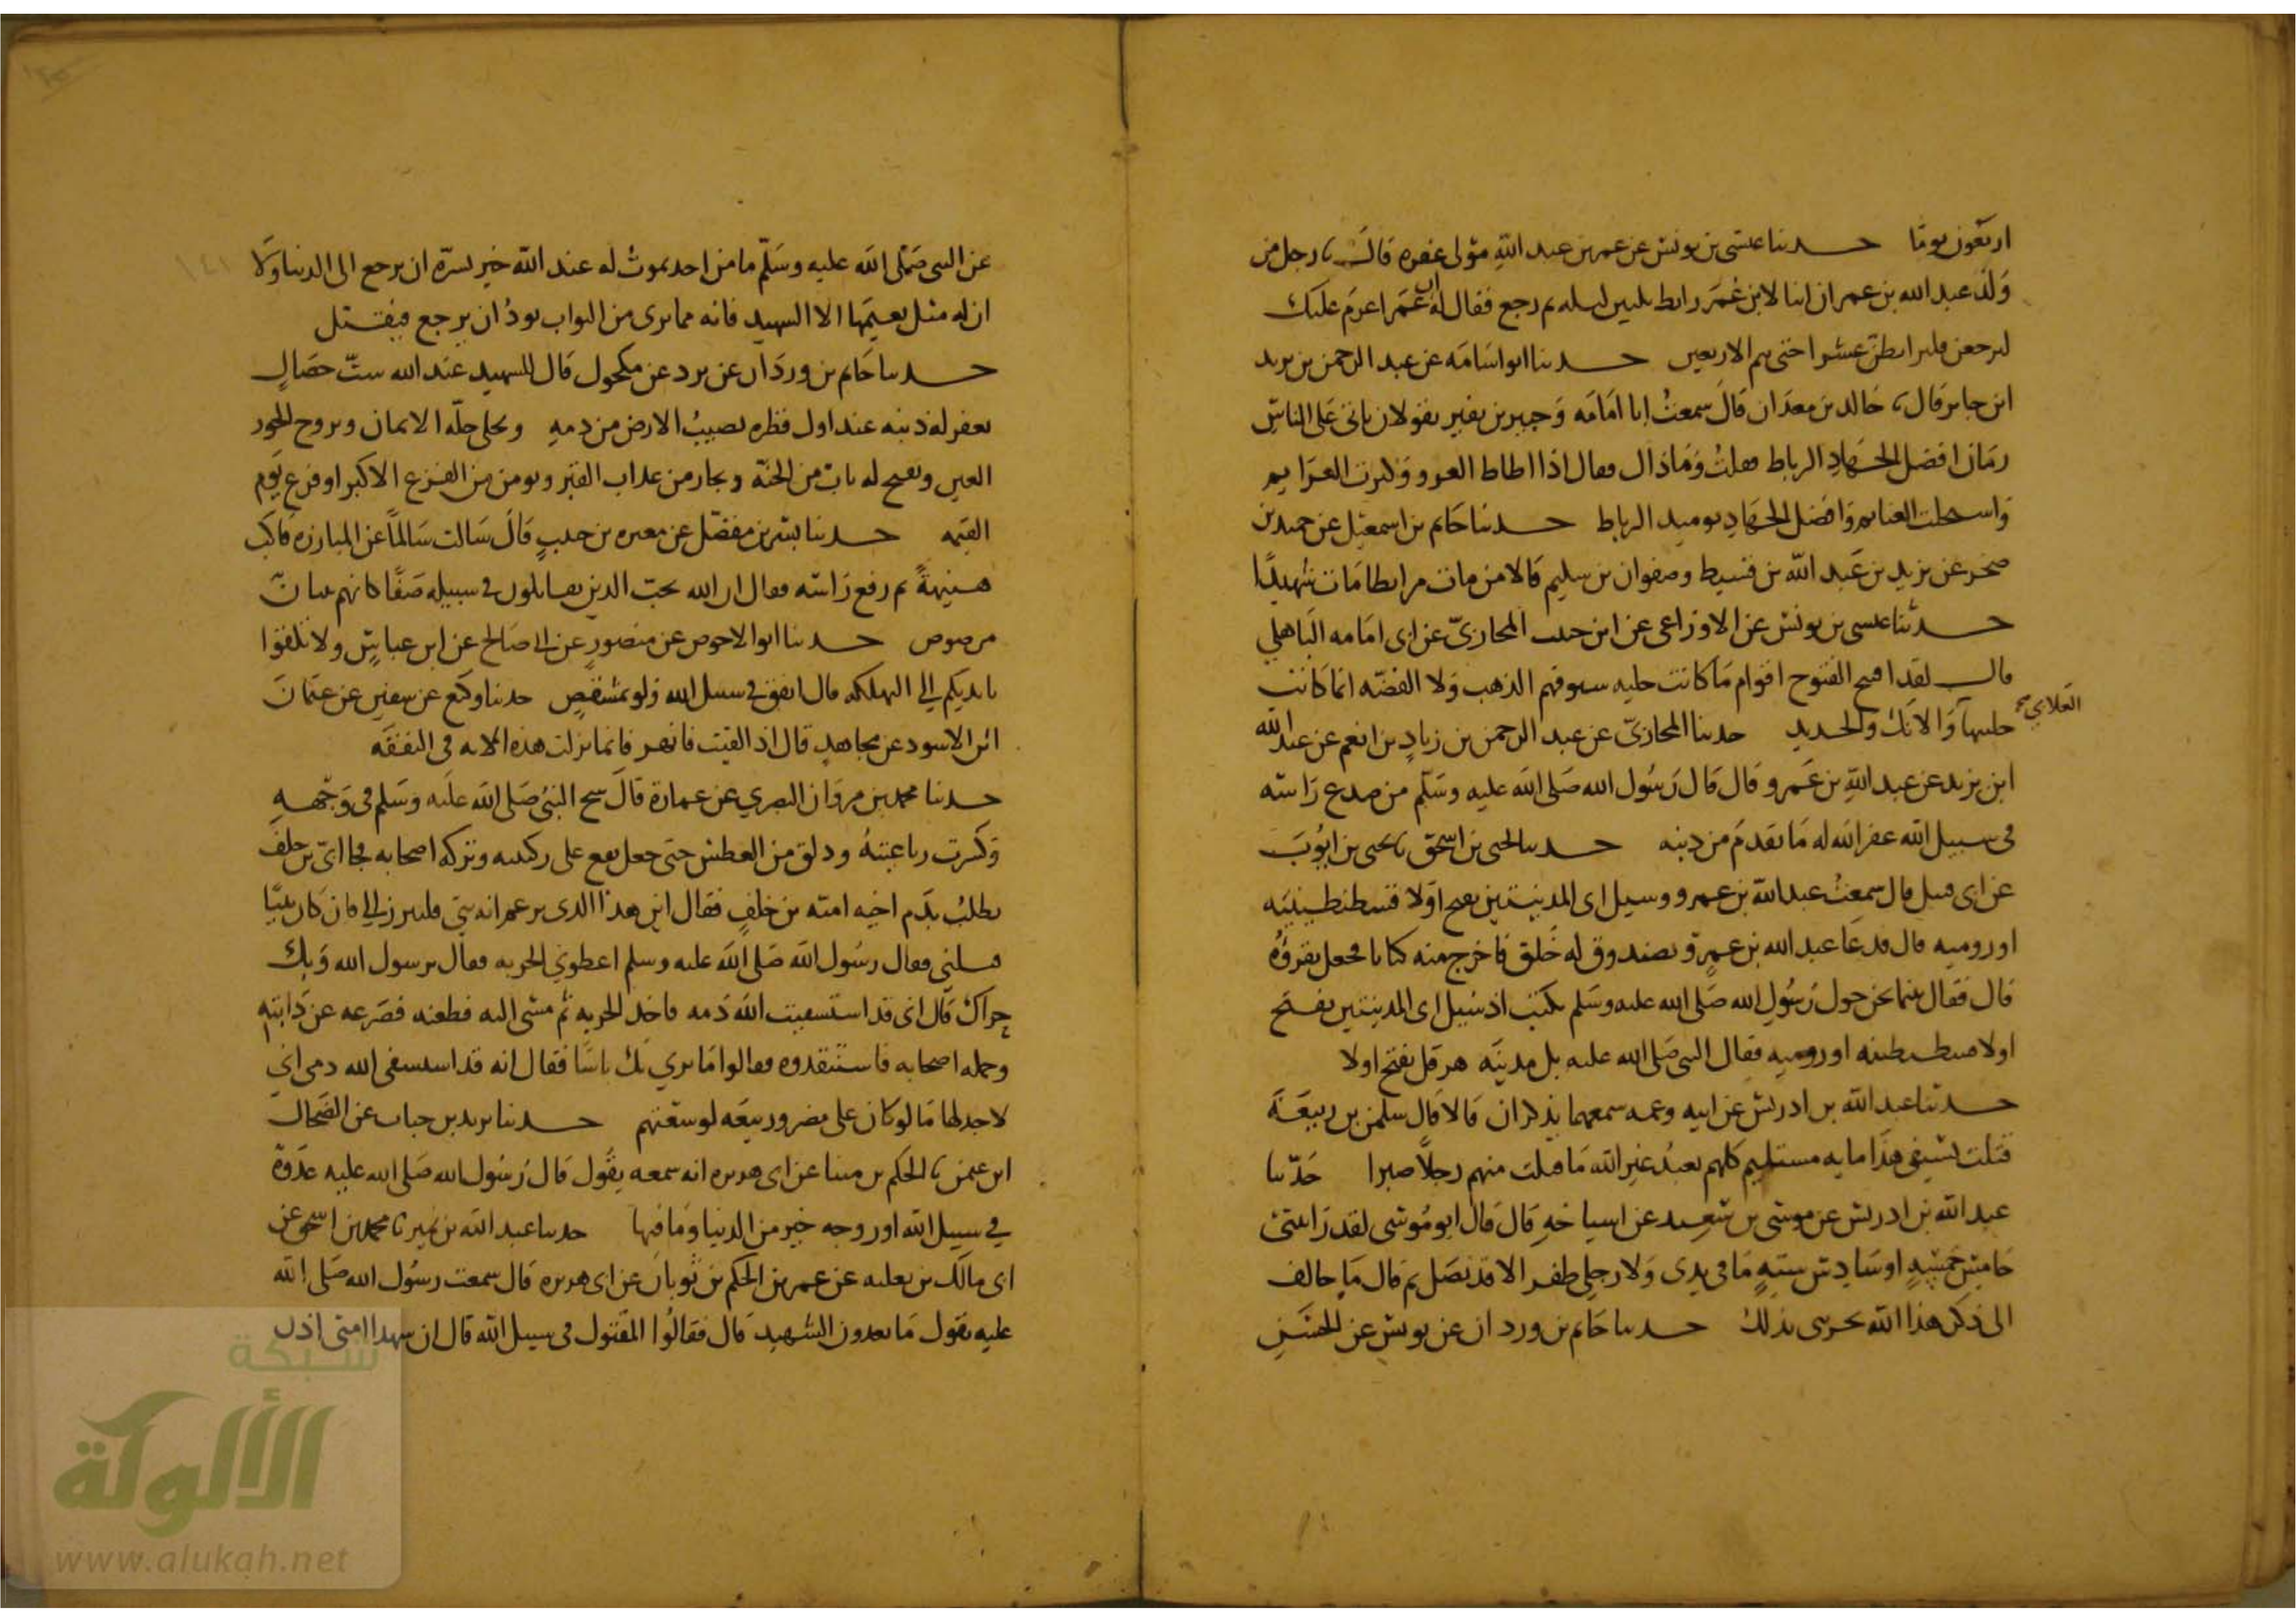 اربعون يوما حدثنا عيسى بن يونس عن عمر بن عبد الله مولى غفره قال نا رجل من
ولد عبد الله بن عمر ان ابنا لابن عمر رابط ثلثين ليله ثم رجع فقال له ابن عمر اعزم عليك
لترجعن فلترابطن عشرا حتى تتم الاربعين حدثنا ابو اسامه عن عبد الرحمن بن يزيد
ابن جابر قال نا خالد بن معدان قال سمعت ابا امامه وجبير بن نفير يقولان ياتي على الناس
زمان افضل الجهاد الرباط فقلت وما ذاك فقال اذا اطاط الغزو وكثرت الغرايم
واستحلت الغنايم وافضل الجهاد يوميذ الرباط حدثنا حاتم بن اسمعيل عن حميد بن
صخر عن يزيد بن عبد الله بن قسيط وصفوان بن سليم قالا من مات مرابطا مات شهيدا
حدثنا عيسى بن يونس عن الاوزاعي عن ابن حبيب المحاربي عن ابي امامه الباهلي
قال لقد افتتح الفتوح اقوام ما كانت حليه سيوفهم الذهب ولا الفضه انما كانت
العلابي صح
حليتها والانك والحديد حدثنا المحاربي عن عبد الرحمن بن زياد بن انعم عن عبد الله
ابن يزيد عن عبد الله بن عمرو قال قال رسول الله صلى الله عليه وسلم من صدع راسه
في سبيل الله غفر الله له ما تقدم من ذنبه حدثنا يحيى بن اسحق نا يحيى بن ايوب
عن ابي قبيل قال سمعت عبد الله بن عمرو وسيل اي المدينتين يفتح اولا قسطنطينيه
او روميه قال فدعا عبد الله بن عمرو بصندوق له خلق فاخرج منه كتابا فجعل يقرؤه
قال فقال بينما نحن حول رسول الله صلى الله عليه وسلم نكتب اذ سيل اي المدينتين يفتح
اولا قسطنطينيه او روميه فقال النبي صلى الله عليه بل مدينه هرقل يفتح اولا
حدثنا عبد الله بن ادريس عن ابيه وعمه سمعهما يذكران قالا قال سلمن بن ربيعة
قتلت بسيفي هذا مايه مستليم كلهم يعبد غير الله ما قتلت منهم رجلا صبرا حدثنا
عبد الله بن ادريس عن موسى بن سعيد عن اشياخه قال قال ابو موسى لقد رايتني
خامس خمسه او سادس سته ما في يدي ولا رجلي ظفر الا قد نصل ثم قال ما خالف
الى ذكر هذا الله يجزي بذلك حدثنا حاتم بن وردان عن يونس عن الحسن
عن النبي صلى الله عليه وسلم ما من احد يموت له عند الله خير يسره ان يرجع الى الدنيا ولا
ان له مثل نعيمها الا الشهيد فانه مما يرى من الثواب يود ان يرجع فيقتل
حدثنا حاتم بن وردان عن برد عن مكحول قال للشهيد عند الله ست خصال
يغفر له ذنبه عند اول قطره تصيب الارض من دمه ويحلى حله الايمان ويزوج الحور
العين ويفتح له باب من الجنة ويجار من عذاب القبر ويومن من الفزع الاكبر او فزع يوم
القيمه حدثنا بشر بن مفضل عن مغيره بن حبيب قال سالت سالما عن المبارزه فاكب
هنيهة ثم رفع راسه فقال ان الله يحب الذين يقاتلون في سبيله صفا كانهم بنيان
مرصوص حدثنا ابو الاحوص عن منصور عن ابي صالح عن ابن عباس ولا تلقوا
بايديكم الي التهلكه قال انفق في سبيل الله ولو بمشقص حدثنا وكيع عن سفين عن عثمان
ابن الاسود عن مجاهد قال اذا لقيت فانهد فانما نزلت هذه الايه في النفقه
حدثنا محمد بن مروان البصري عن عمارة قال شج النبي صلى الله عليه وسلم في وجهه
وكسرت رباعيته وذلق من العطش حتى جعل يقع على ركبتيه وتركه اصحابه فجا ابي بن خلف
يطلب بدم اخيه اميه بن خلف فقال اين هذا الذي يزعم انه نبي فليبرز الي فان كان نبيا
قتلني فقال رسول الله صلى الله عليه وسلم اعطوني الحربه فقال يرسول الله وبك
حراك قال اني قد استسقيت الله دمه فاخذ الحربه ثم مشى اليه فطعنه فصرعه عن دابته
وحمله اصحابه فاستنقذوه فقالوا ما نري بك باسا فقال انه قد استسقى الله دمي اني
لاجد لها ما لو كان على مضر وربيعه لوسعتهم حدثنا زيد بن حباب عن الضحاك
ابن عثمن نا الحكم بن مينا عن ابي هريره انه سمعه يقول قال رسول الله صلى الله عليه غدوة
في سبيل الله او روحه خير من الدنيا وما فيها حدثنا عبد الله بن نمير نا محمد بن اسحق عن
ابي مالك بن ثعلبه عن عمر بن الحكم بن ثوبان عن ابي هريره قال سمعت رسول الله صلى الله
عليه يقول ما تعدون الشهيد قال فقالوا المقتول في سبيل الله قال ان شهدا امتي اذن
١٤١
شبكة
الألوكة
www.alukah.net